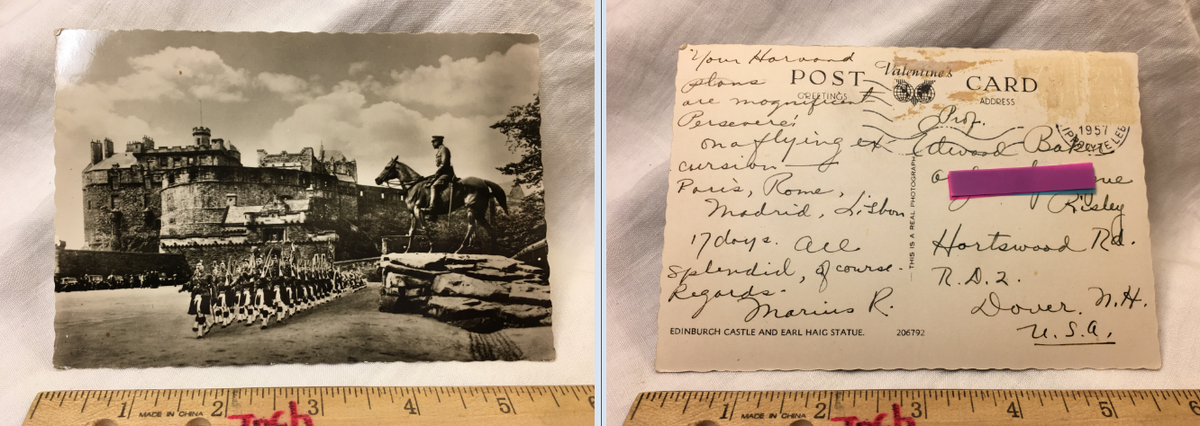 Your Harvard
plans
are magnificent
Persevere!
on a flying ex-
cursion
Paris, Rome,
Madrid, Lisbon
17 days. All
splendid, of course.
Regards.
Marius R.
POST CARD
Valentine's
GREETINGS
ADDRESS
1957
Prof.
Edwood
Risley
Hartswood Rd.
R.D.2.
Dover. N.H.
U.S.A.
THIS IS A REAL PHOTOGRAPH
EDINBURGH CASTLE AND EARL HAIG STATUE. 206792
1 MADE IN CHINA 2 Inch 3 4 5
1 MADE IN CHINA 2 Inch 3 4 5 6